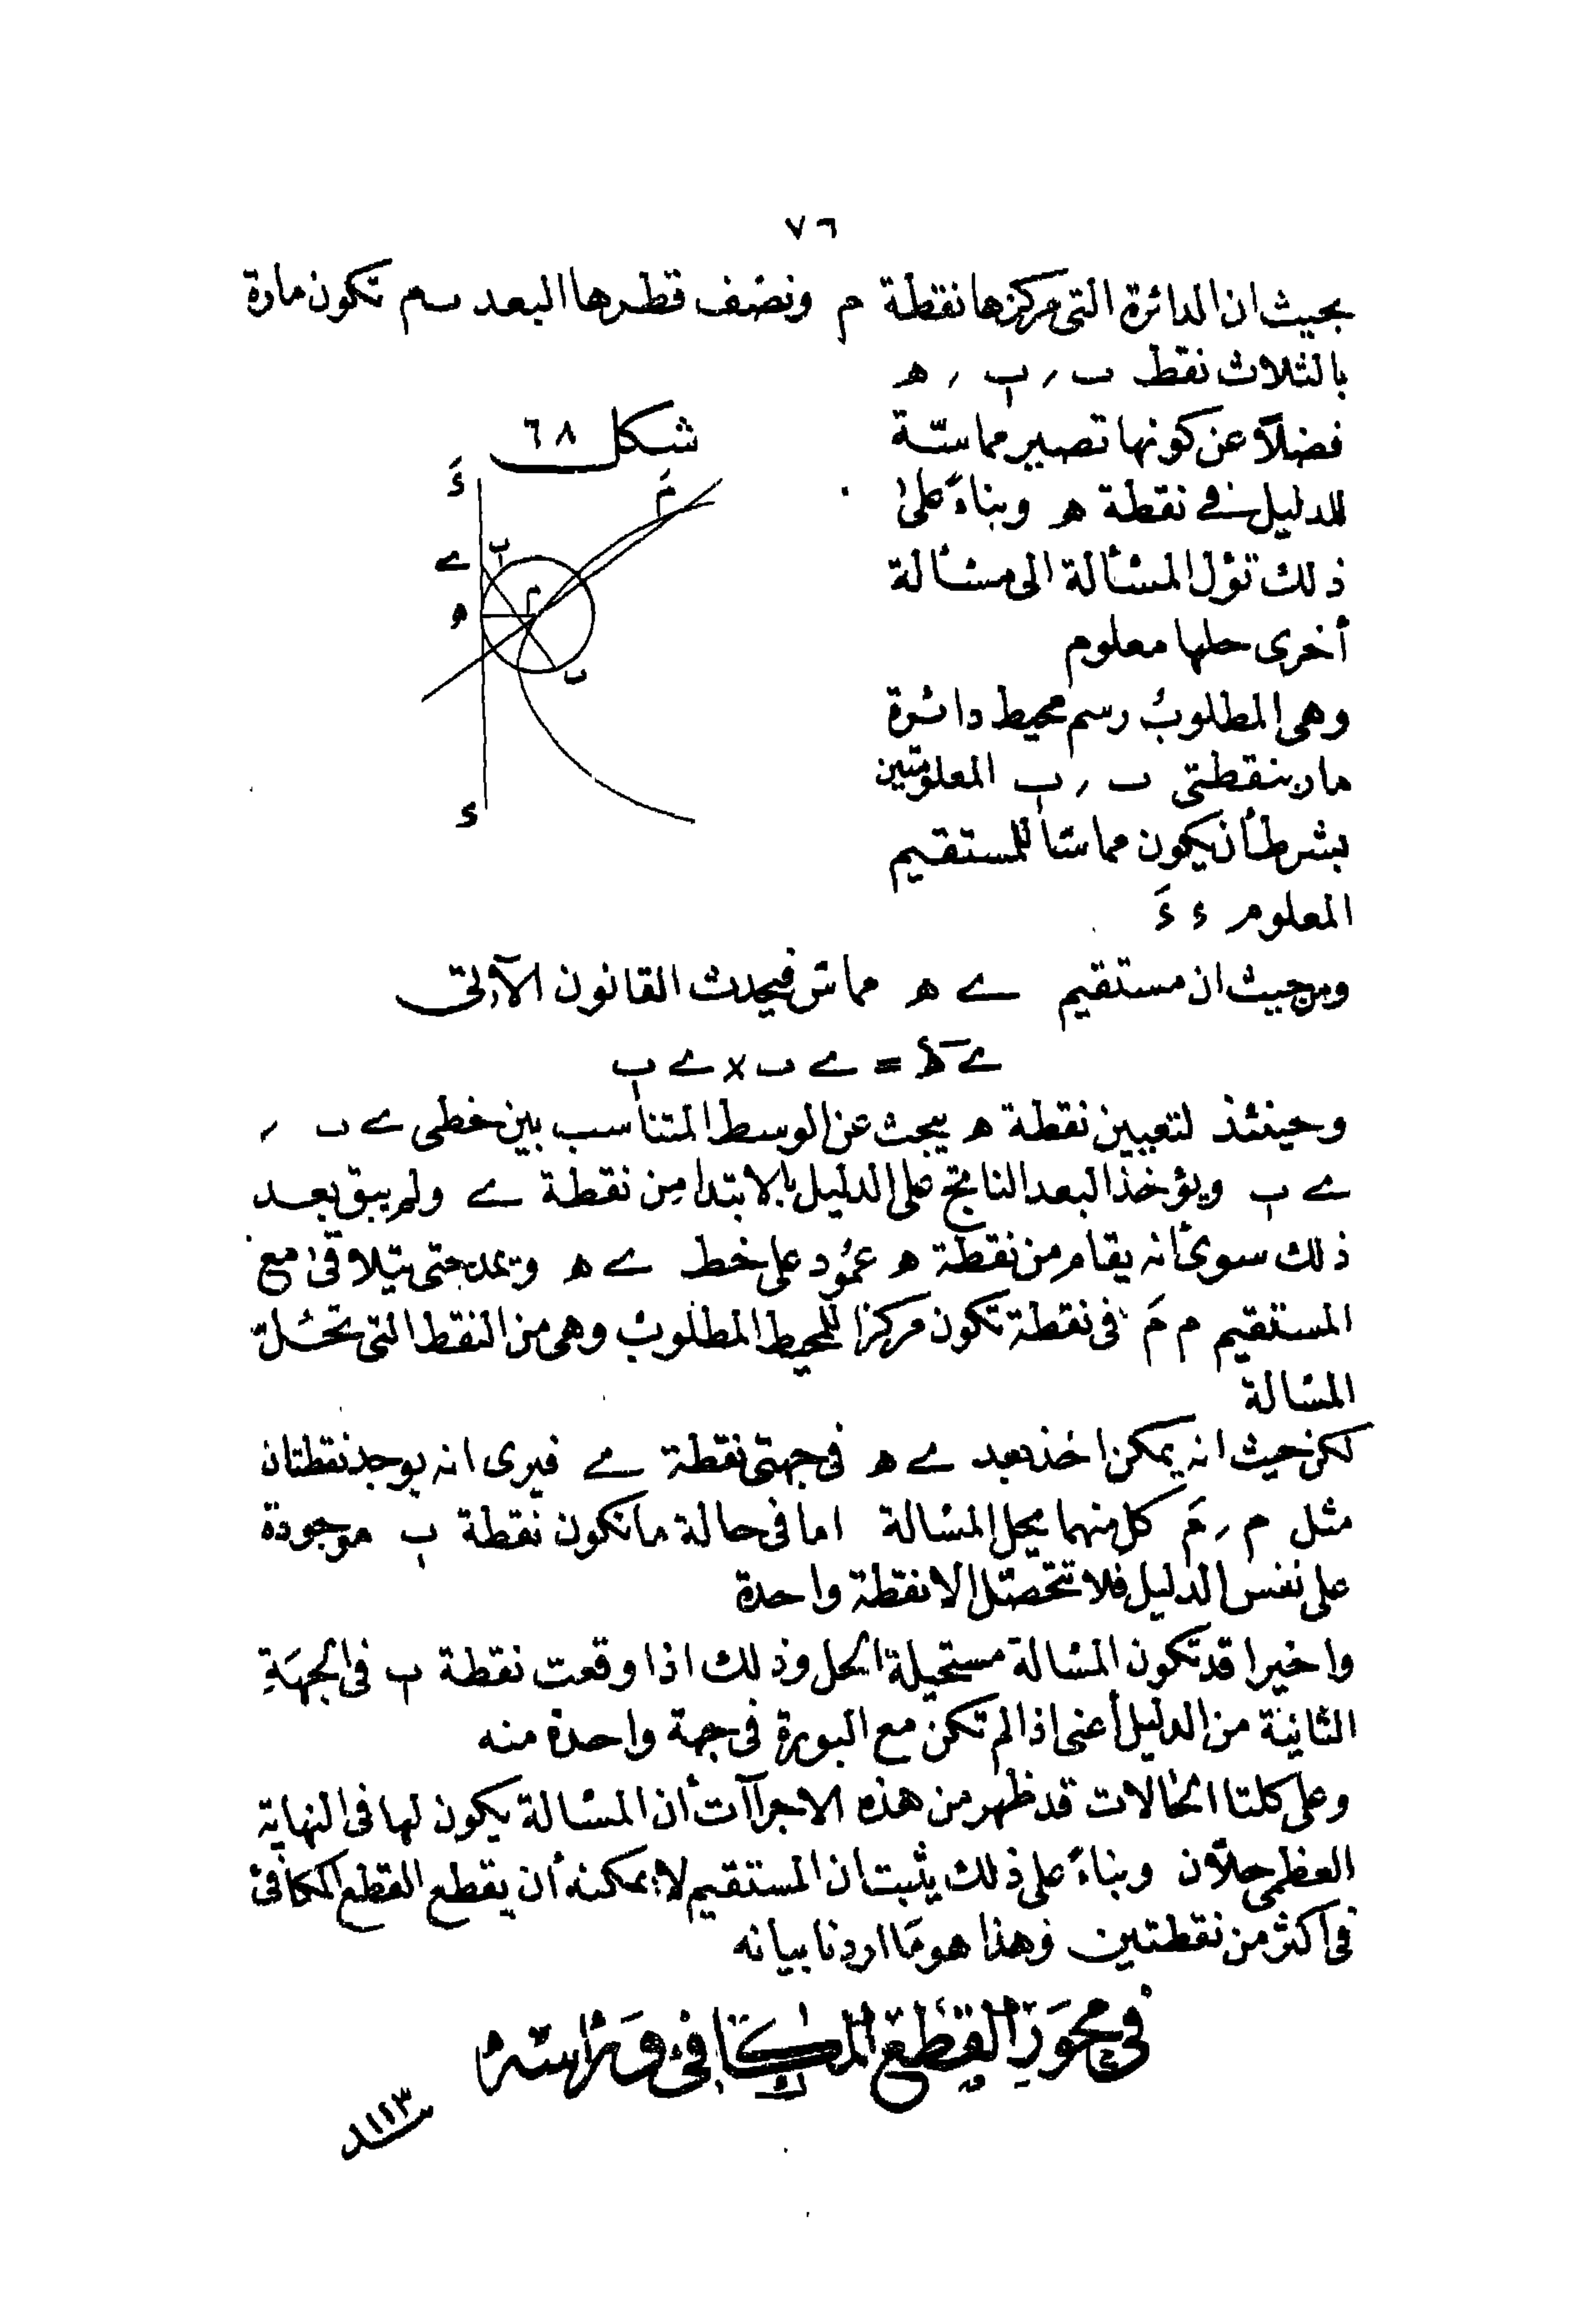 ٧٦
بحيث ان الدائرة التى مركزها نقطة م ونصف قطرها البعد ٮم تكون مارة
بالثلاث نقط ٮ , ب , ه
شكل ٦٨
فضلاً عن كونها تصير مماسّة
للدليل فے نقطة ه وبناءً على
ذلك تؤل المسألة الى مسألة
أخرى حلها معلوم
وهى المطلوب رسم محيط دائرة
مار بنقطتى ٮ , ب المعلومتين
بشرط أن يكون مماسّا للمستقيم
المعلوم ء ءَ
ءَ
مَ
ے
ب
م
ه
ٮ
ء
ومن حيث ان مستقيم ے ه مماس فيحدث القانون الآتى
ے ه٢ = ے ٮ × ے ب
وحينئذ لتعيين نقطة ه يبحث عن الوسط المتناسب بين خطى ے ٮ ,
ے ب ويؤخذ البعد الناتج على الدليل بالابتدا من نقطة ے ولم يبق بعد
ذلك سوى أنه يقام من نقطة ه عمود على خط ے ه ويمد حتى يتلاقى مع
المستقيم م مَ فى نقطة تكون مركزا للمحيط المطلوب وهى من النقط التى تحل
المسالة
لكن حيث انه يمكن اخذ بعد ے ه فى جهتى نقطة ے فيرى انه يوجد نقطتان
مثل م , مَ كل منهما يحل المسالة اما فى حالة ما تكون نقطة ب موجودة
على نفس الدليل فلا تتحصل الا نقطة واحدة
واخيرا قد تكون المسالة مستحيلة الحل وذلك اذا وقعت نقطة ب فى الجهة
الثانية من الدليل أعنى اذا لم تكن مع البورة فى جهة واحدة منه
وعلى كلتا الحالات قد ظهر من هذه الاجراآت أن المسالة يكون لها فى النهاية
العظمى حلّان وبناءً على ذلك يثبت ان المستقيم لا يمكنه أن يقطع القطع المكافئ
فى اكثر من نقطتين وهذا هو ما اردنا بيانه
فى محور القطع المكافئ وراسه